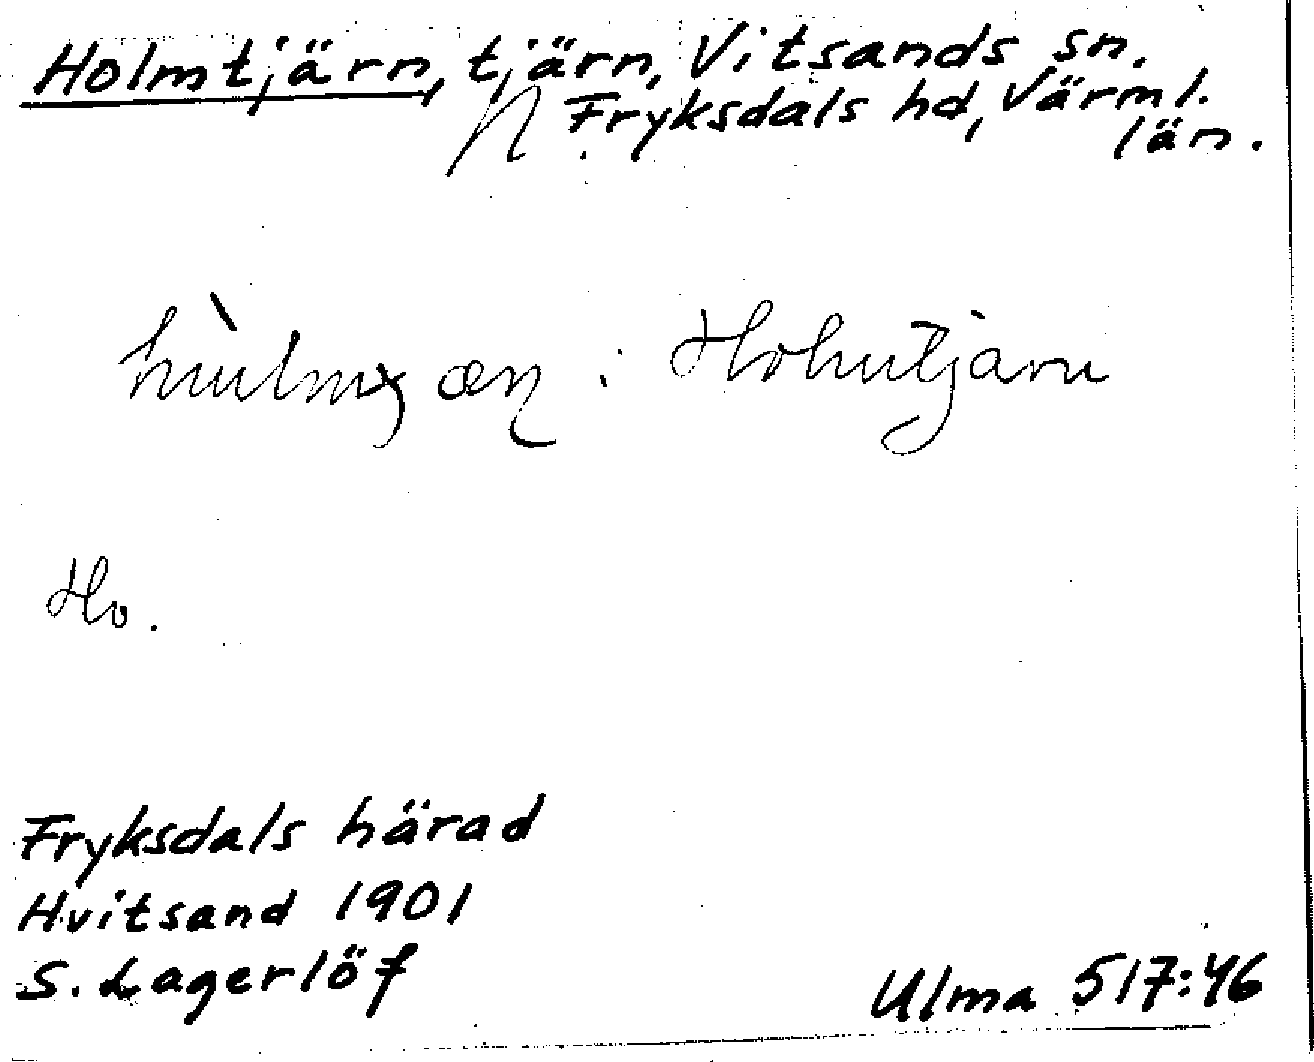 Holmtjärn, tjärn, Vitsands sn.
N. Fryksdals hd, Värml.
län.
: Holmtjärn
Ho.
Fryksdals härad
Hvitsand 1901
S. Lagerlöf
Ulma 517:46